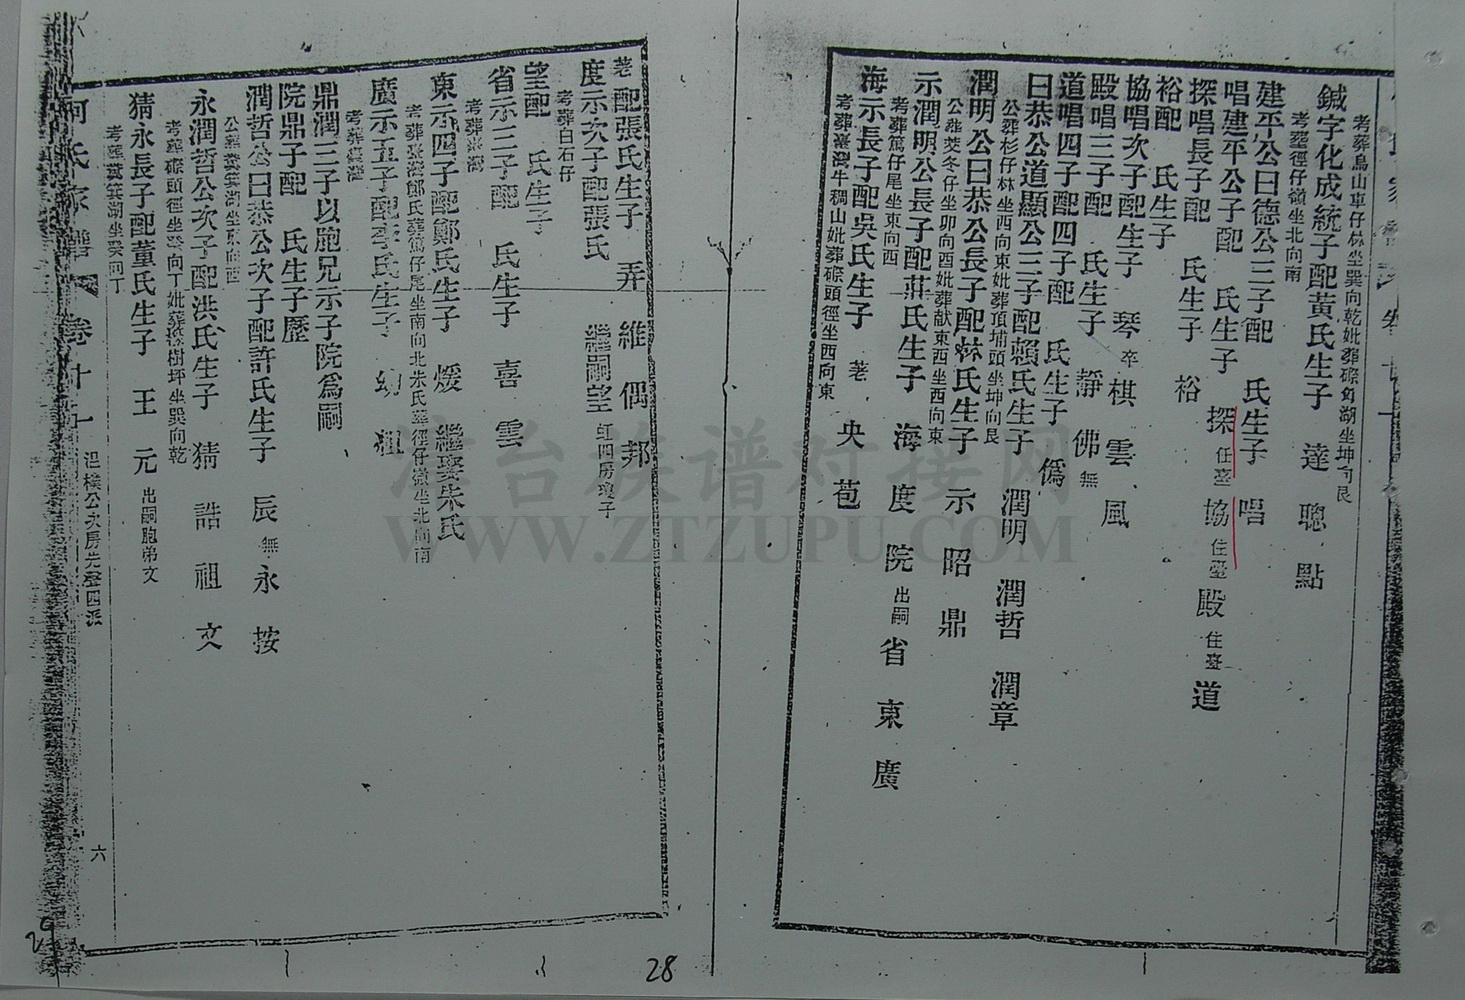 考葬鳥山車仔林坐巽向乾妣葬磜角湖坐坤向艮
鍼字化成統子配黃氏生子 達 聰 點
考葬徑仔嶺坐北向南
建平公曰德公三子配 氏生子 唱
唱建平公子配 氏生子 探住臺 協住臺 殿住臺 道
探唱長子配 氏生子 裕
裕配 氏生子
協唱次子配生子 琴卒 棋 雲 風
殿唱三子配 氏生子 靜 佛無
道唱四子配四子配 氏生子 偽
曰恭公道顯公三子配賴氏生子 潤明 潤哲 潤章
公葬杉仔林坐西向東妣葬頂埔頭坐坤向艮
潤明公曰恭公長子配林氏生子 示 昭 鼎
公葬茭冬仔坐卯向酉妣葬献東西坐西向東
示潤明公長子配莊氏生子 海 度 院出嗣 省 東 廣
考葬篤仔尾坐東向西
海示長子配吳氏生子 荖 央 苞
考葬臺灣牛稠山妣葬磜頭徑坐西向東
荖配張氏生子 弄 維 偶 邦
度示次子配張氏 繼嗣望 虹四房瓊子
考葬白石仔
望配 氏生子
省示三子配 氏生子 喜 雲
考葬臺灣
東示四子配鄭氏生子 煖 繼娶朱氏
考葬臺灣鄭氏葬篤仔尾坐南向北朱氏葬徑仔嶺坐北向南
廣示五子配李氏生子 幼 祖
考葬臺灣
鼎潤三子以胞兄示子院為嗣
院鼎子配 氏生子歷
潤哲公曰恭公次子配許氏生子 辰無 永 按
公葬糞箕湖坐東向西
永潤哲公次子配洪氏生子 猜 誥 祖 文
考葬磜頭徑坐癸向丁妣葬 樹坪坐巽向乾
猜永長子配董氏生子 王 元出嗣胞弟文
考葬糞箕湖坐癸向丁
何氏家譜 卷十一 次房先登四派
六
28
29
漳台族谱对接网
WWW.ZTZUPU.COM